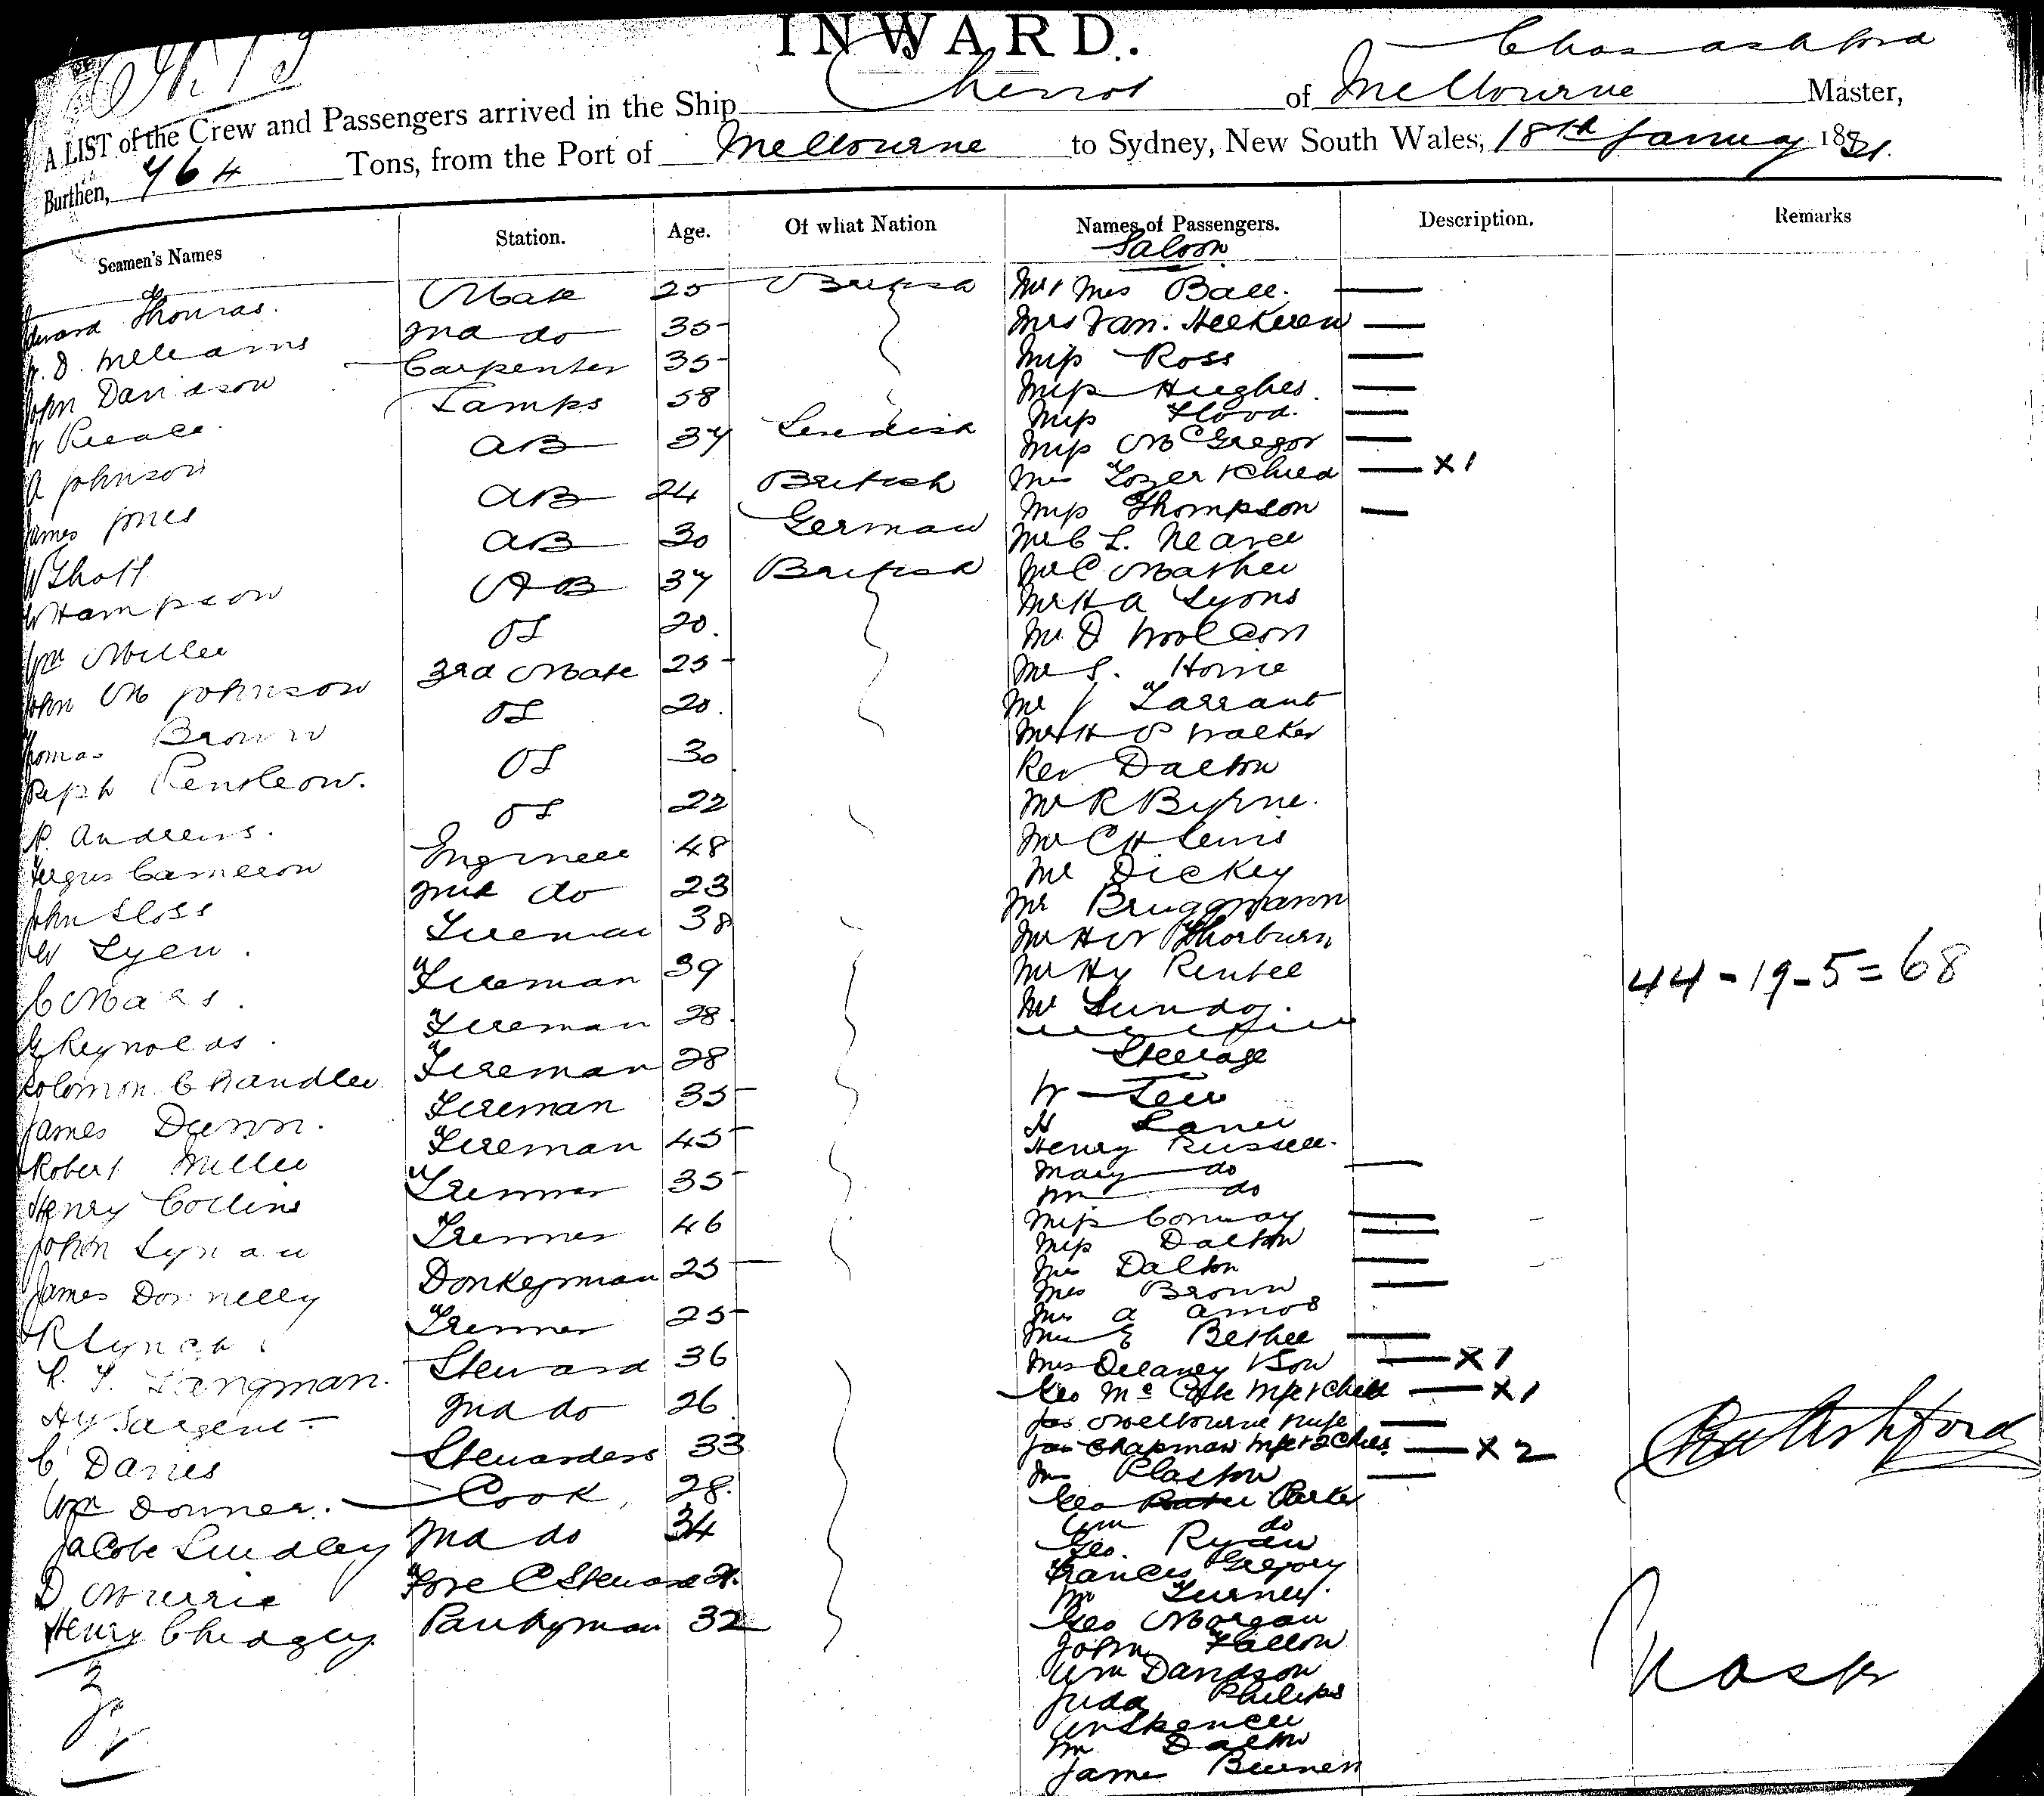 INWARD.
Chas Ashford
A LIST of the Crew and Passengers arrived in the Ship Cheviot of Melbourne Master,
Burthen, 764 Tons, from the Port of Melbourne to Sydney, New South Wales, 18th January 1881.
Seamen's Names Station. Age. Of what Nation Names of Passengers. Description. Remarks
Saloon
Thomas. Mate 25 British Mr & Mrs Ball.
D. Williams 2nd do 35 Mrs Van. Heekeren
John Davidson Carpenter 35 Miss Ross
W Lamps 58 Miss Hughes
Miss Flood.
A Johnson AB 37 Swedish Miss McGregor
James Jones AB 24 British Mrs Tozer & Child X 1
Miss Thompson
W AB 30 German Mr C L.
W Hampson AB 37 British Mr C Mather
Mr H A Lyons
Wm Miller OS 20. Mr D
John M Johnson 3rd Mate 25 Mr S. Horne
Thomas Brown OS 20. Mr J Tarrant
Mr H P Walker
Joseph OS 30 Rev Dalton
P. Andrews. OS 22 Mr R Byrne.
Fergus Cameron Engineer 48 Mr C H Lewis
John Sloss 2nd do 23 Mr Dickey
Mr Bruggmann
W Lyen. Fireman 38 Mr H W Thorburn
C Maas. Fireman 39 Mr Hy
44 - 19 - 5 = 68
G Reynolds. Fireman 28. Mr Lundy.
Solomon Chandler Fireman 28 Steerage
James Dunn. Fireman 35 W
H
Robert Miller Fireman 45 Henry Russell.
Mary do
Henry Collins Trimmer 35 Wm do
John Trimmer 46 Miss Conway
Miss Dalton
James Donnelly Donkeyman 25 Mrs Dalton
Mrs Brown
R Lynch. Trimmer 25 Mrs A Amos
Mrs E
R. T. Langman. Steward 36 Mrs Delaney & Son X 1
Hy Sargent 2nd do 26 Geo Wife & Child X 1
Jas Melbourne Wife
C Davis Stewardess 33 Jas Chapman Wife & 2 Child. X 2
Mrs
Wm Donner. Cook, 28. Geo Parker
Wm do
Jacob Lindley 2nd do 34 Geo. Ryan
Frances Gregory
D Murrie Fore C Steward 21. Mr Turney.
Henry Chedgey. Pantryman 32 Geo Morgan
John Fallon
Wm Davidson
Judd Philips
W Spencer
Wm Dalton
James
Chas Ashford
Master